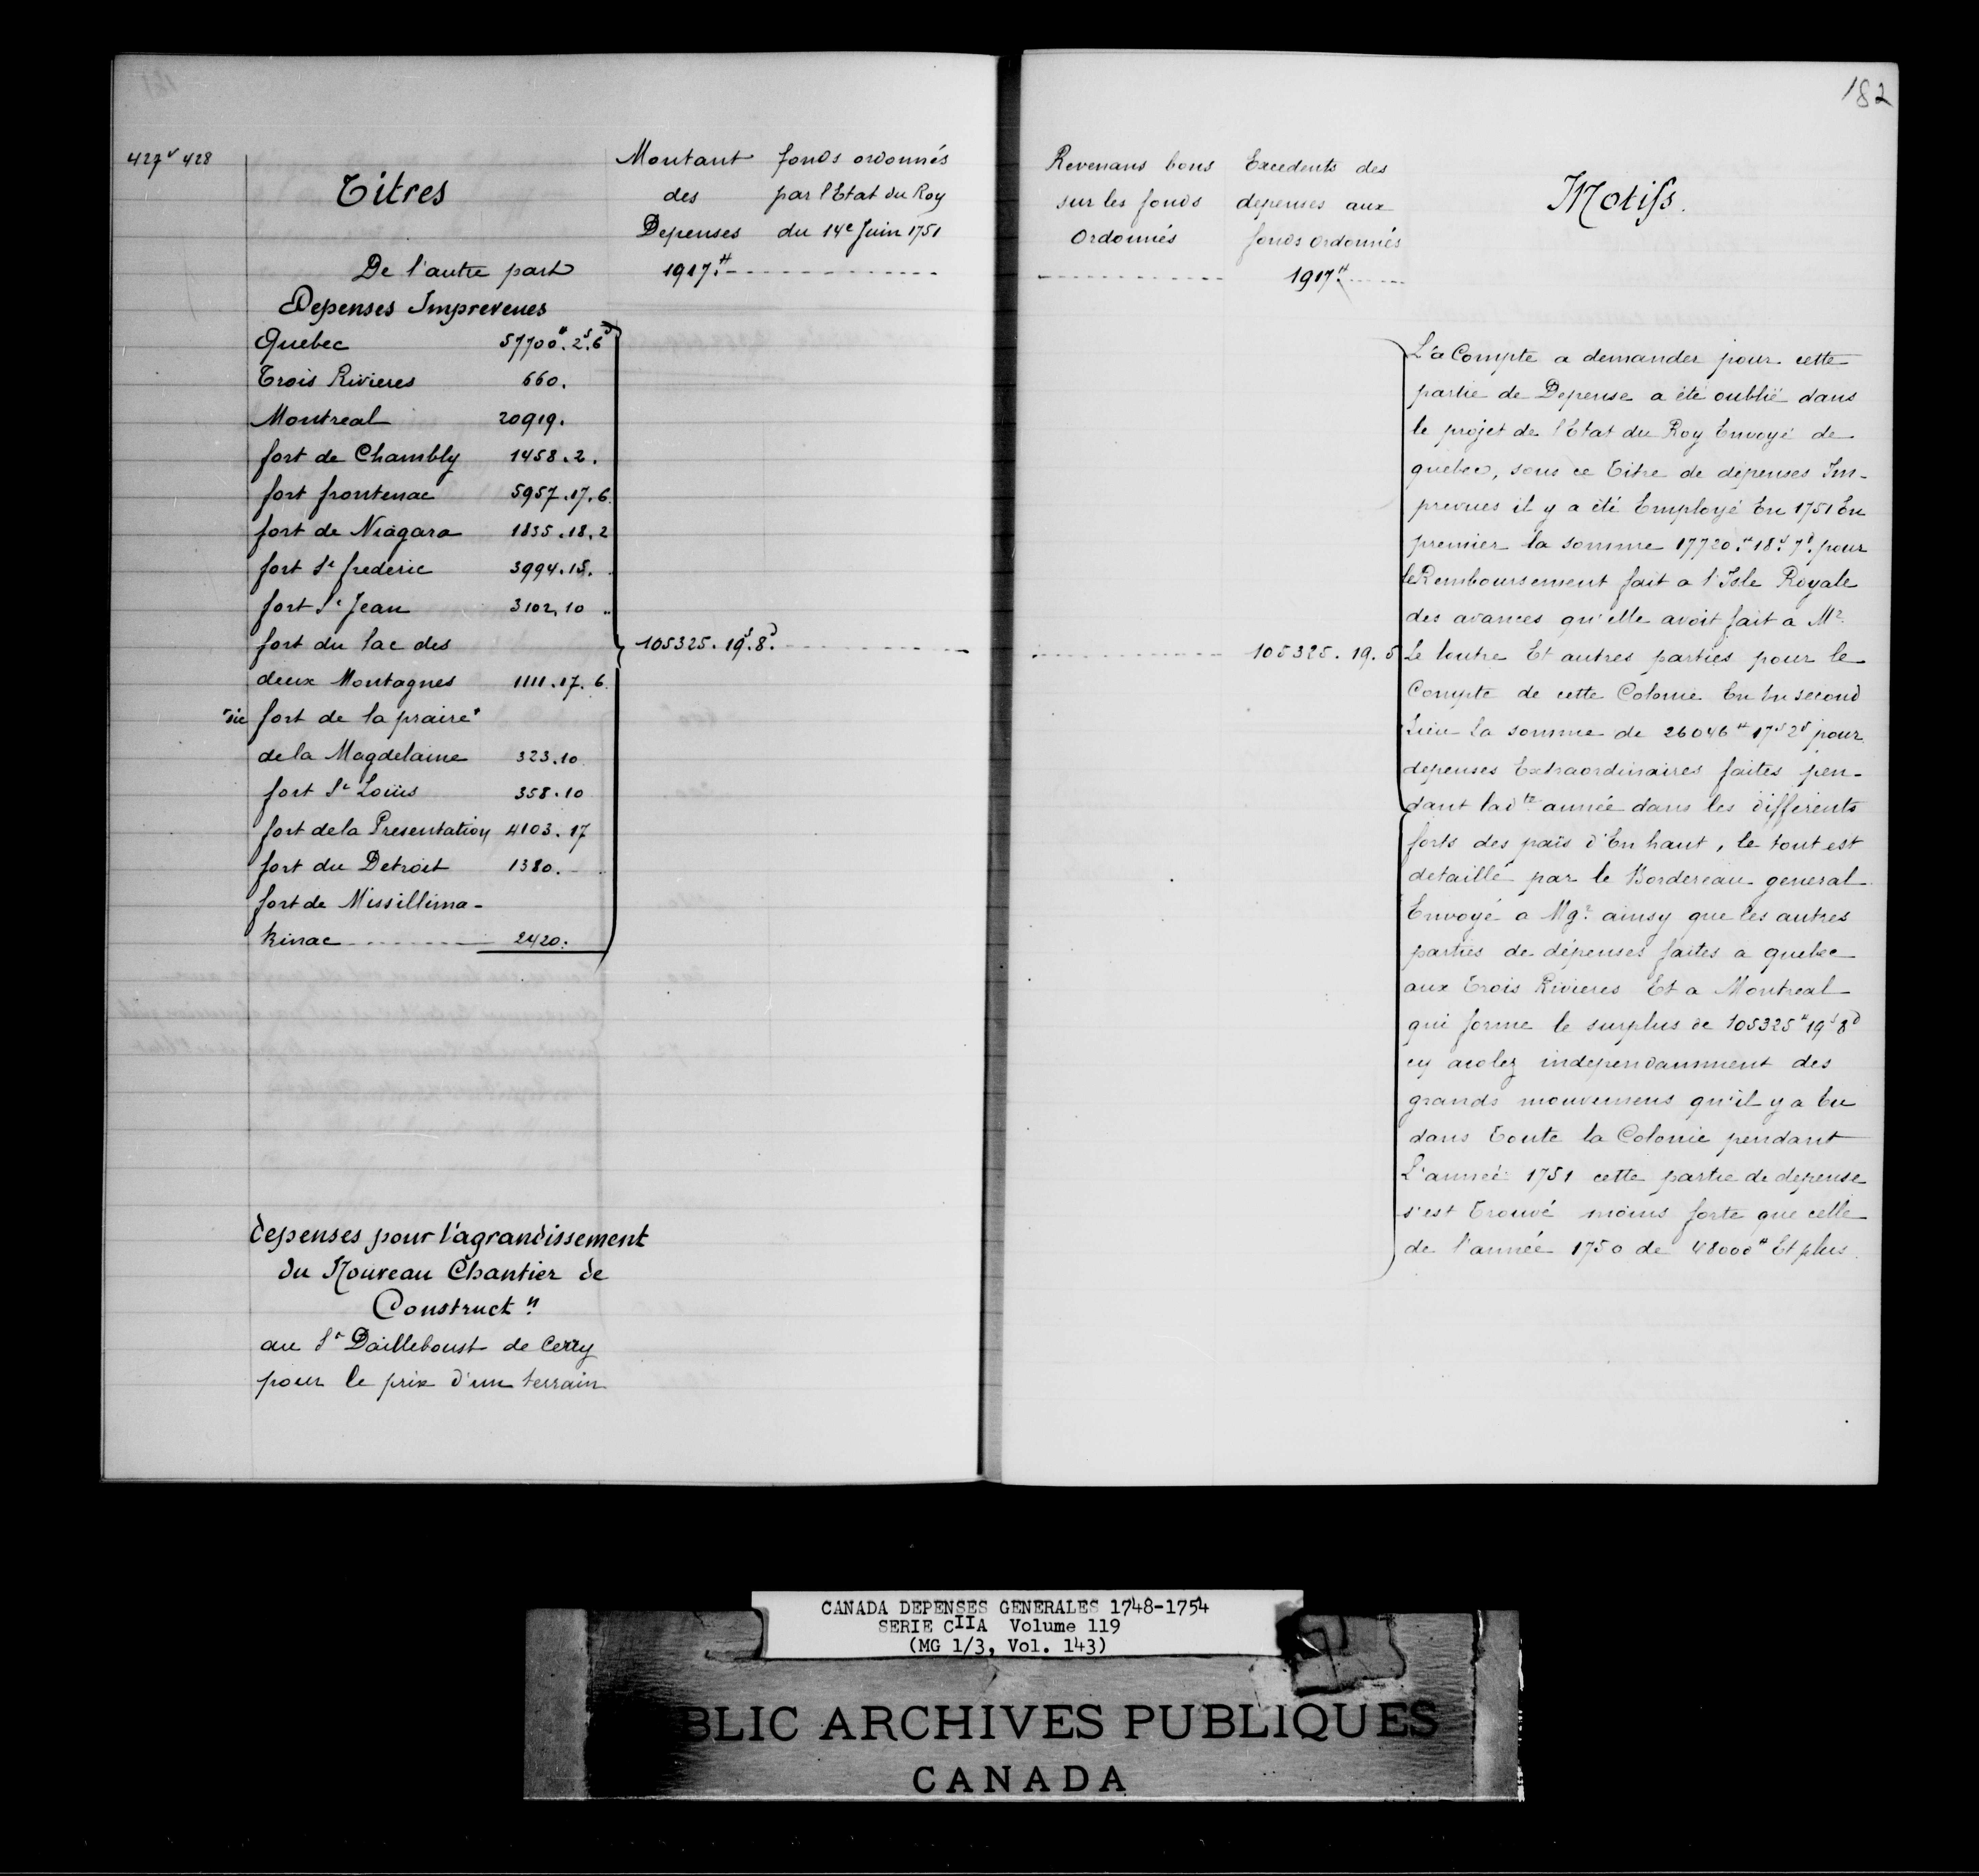 182
427v 428
Titres
Montant des Depenses
fonds ordonnés par l'Etat du Roy du 14e Juin 1751
De l'autre part 1917.tt
Depenses Imprevenes
Quebec 57700tt.2s.6d
Trois Rivieres 660.
Montreal 20919.
fort de Chambly 1458.2.
fort frontenac 5957.17.6.
fort de Niagara 1835.18.2
fort St frederic 3994.15.
fort St Jean 3102,10 "
fort du lac des
deux Montagnes 1111.17.6.
"sic fort de la praire"
de la Magdelaine 323.10
fort St Loüis 358.10
fort dela Presentation 4103.17
fort du Detroit 1380.
fort de Missillima-
kinac 2420.
105325.19s.8d.
depenses pour l'agrandissement
du Nouveau Chantier de
Construct.n
au Sr Dailleboust de Cerry
pour le prix d'un terrain
Revenans bons sur les fonds Ordonnés
Excedents des depenses aux fonds ordonnés
Motifs.
1917tt.
105325.19.8
L'a Compte a demander pour cette
partie de Depense a été oublié dans
le projet de l'Etat du Roy Envoyé de
quebec, sous ce Titre de dépenses Im-
prevues il y a été Employé En 1751 En
premier la somme 17720.tt 18.s 7d. pour
le Remboursement fait a l'Isle Royale
des avances qu'elle avoit fait a Mr.
Le loutre Et autres parties pour le
Compte de cette Colonie En Un second
Lieu la somme de 26046tt 17s 2d pour
depenses Extraordinaires faites pen-
dant lad.te année dans les differents
forts des païs d'En haut, le tout est
detaillé par le Bordereau general
Envoyé a Mgr. ainsy que les autres
parties de dépenses faites a quebec
aux Trois Rivieres Et a Montreal
qui forme le surplus de 105325tt 19s 8d
cy acolez independamment des
grands mouvemens qu'il y a Eu
dans Toute la Colonie pendant
L'année 1751 cette partie de depense
s'est Trouvé moins forte que celle
de l'année 1750 de 48000tt Et plus.
CANADA DEPENSES GENERALES 1748-1754
SERIE CIIA Volume 119
(MG 1/3, Vol. 143)
BLIC ARCHIVES PUBLIQUES
CANADA